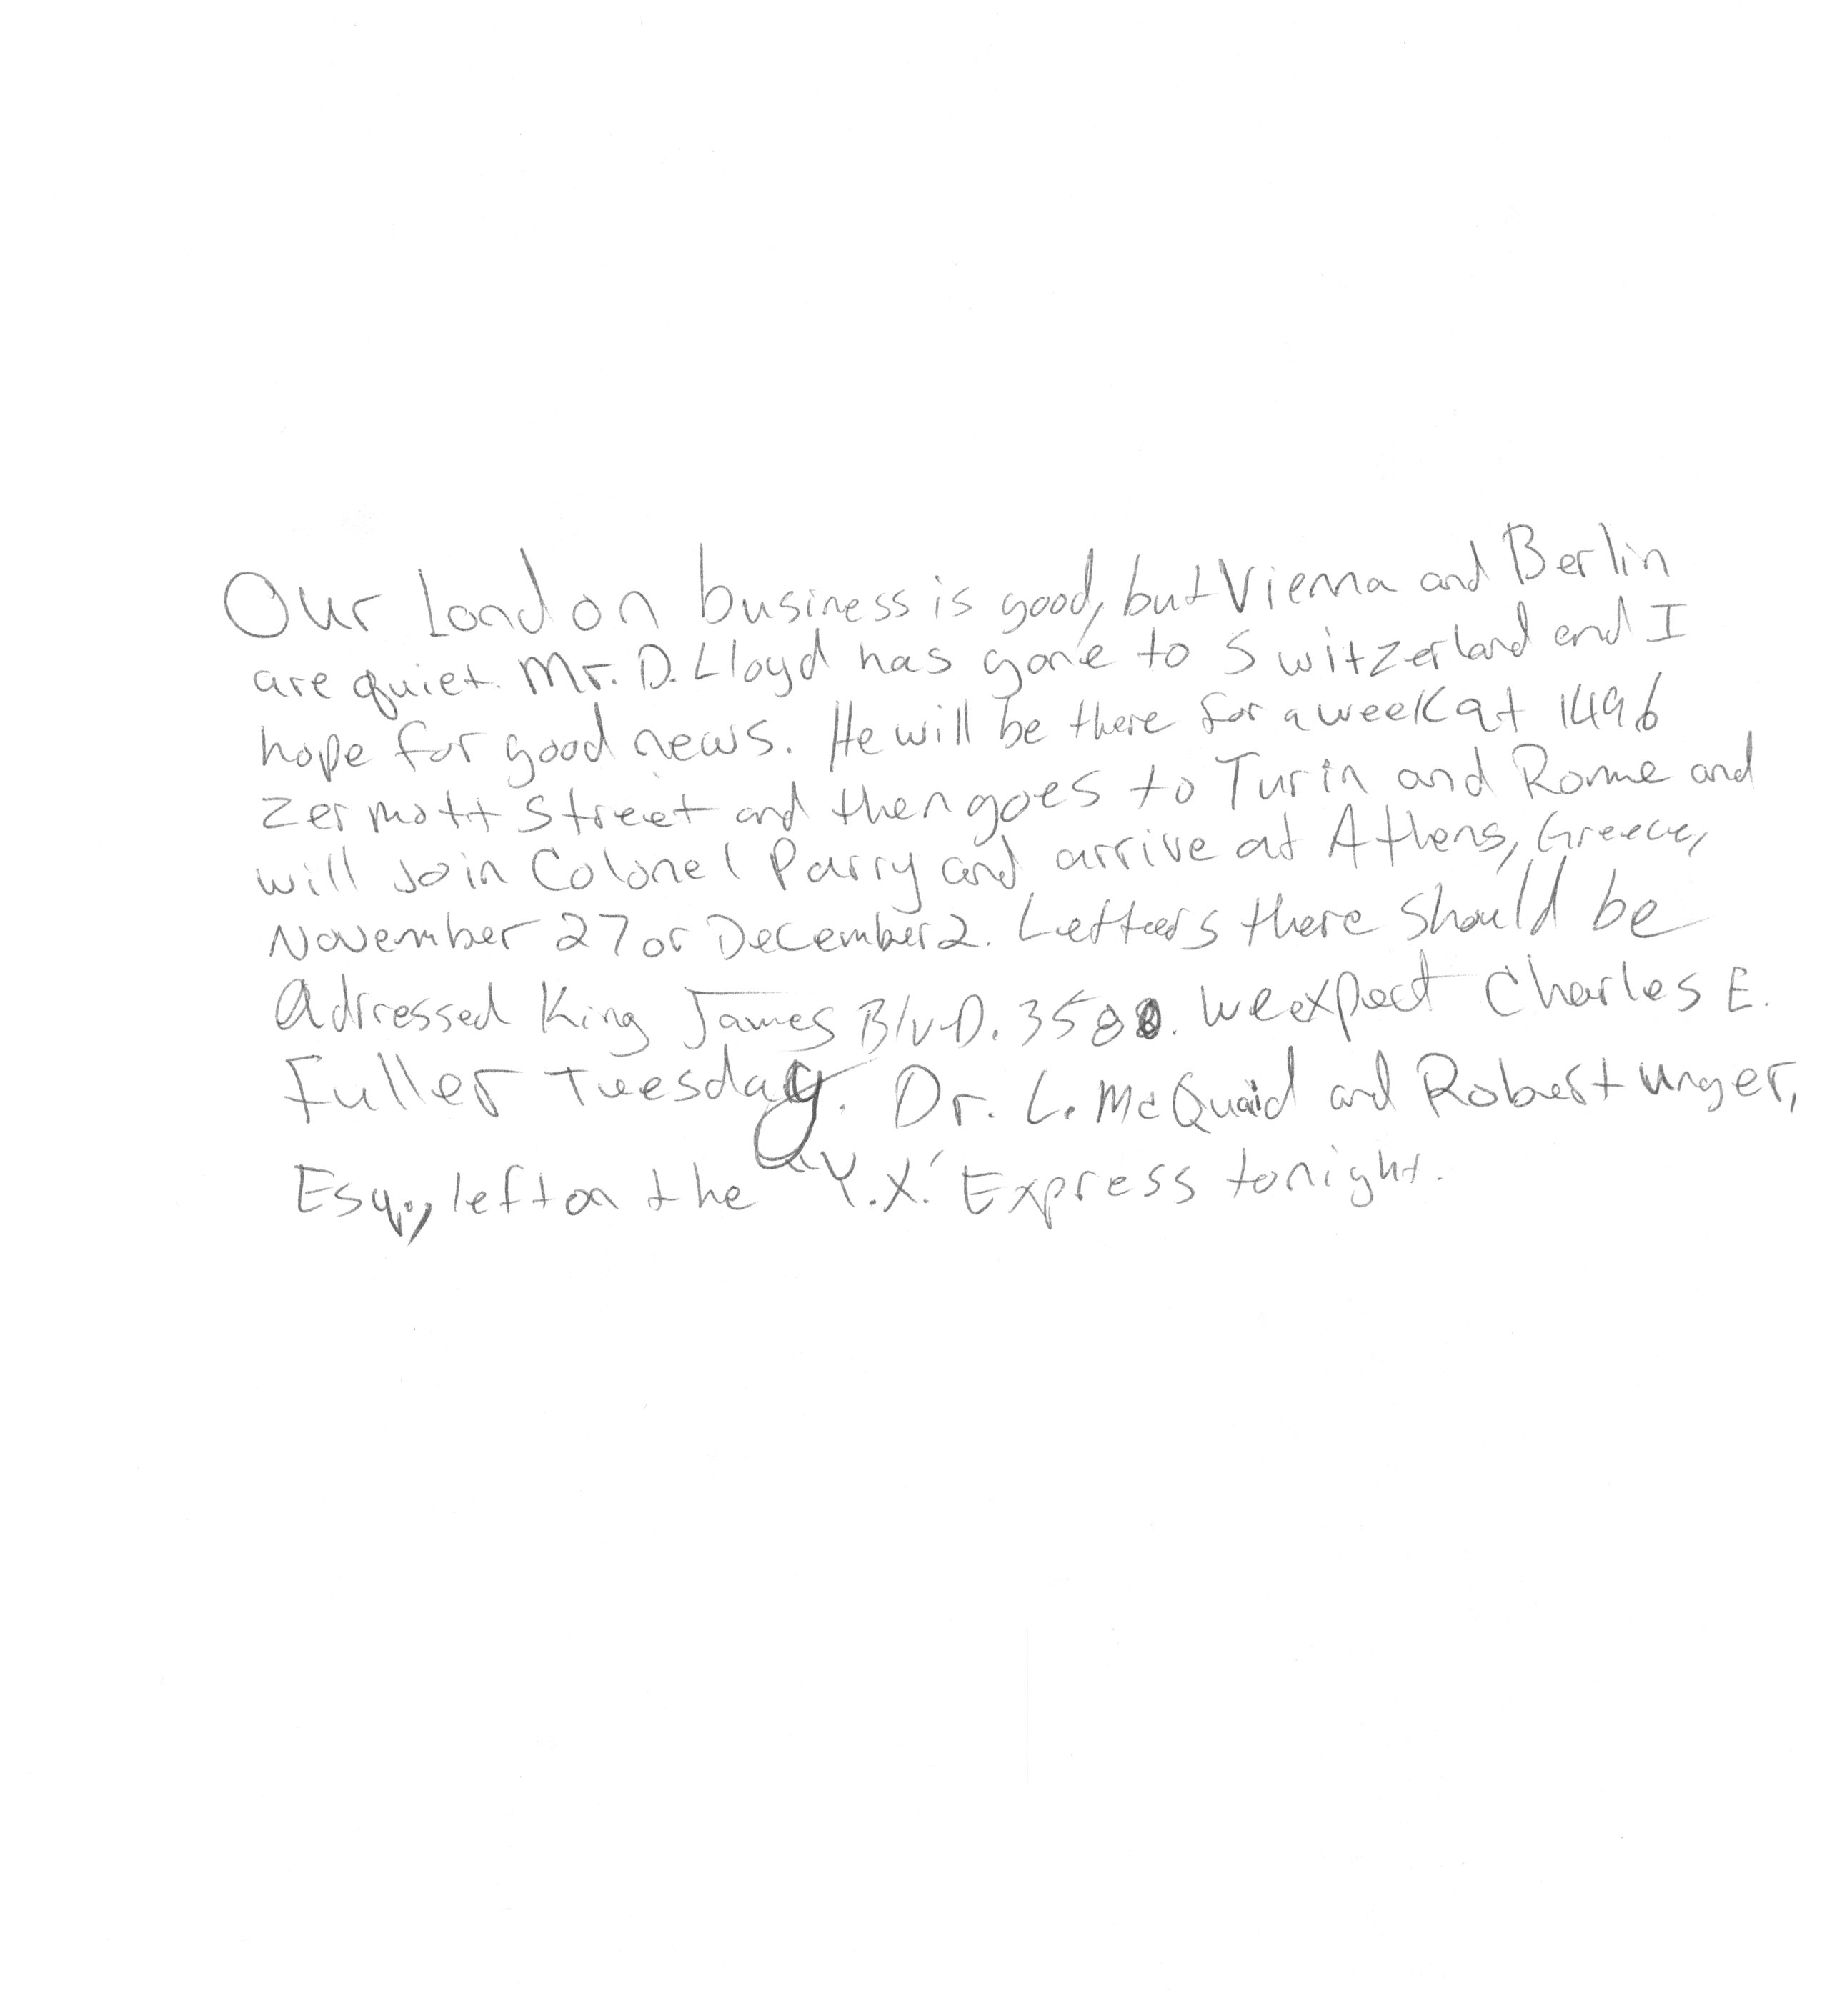 Our London business is good, but Vienna and Berlin
are quiet. Mr. D. Lloyd has gone to Switzerland and I
hope for good news. He will be there for a week at 1496
Zermott Street and then goes to Turin and Rome and
will join Colonel Parry and arrive at Athens, Greece,
November 27 or December 2. Letters there should be
Adressed King James BlvD. 3580. We expect Charles E.
Fuller Tuesday. Dr. L. McQuaid and Robert Unger,
Esq., left on the "Y.X." Express tonight.